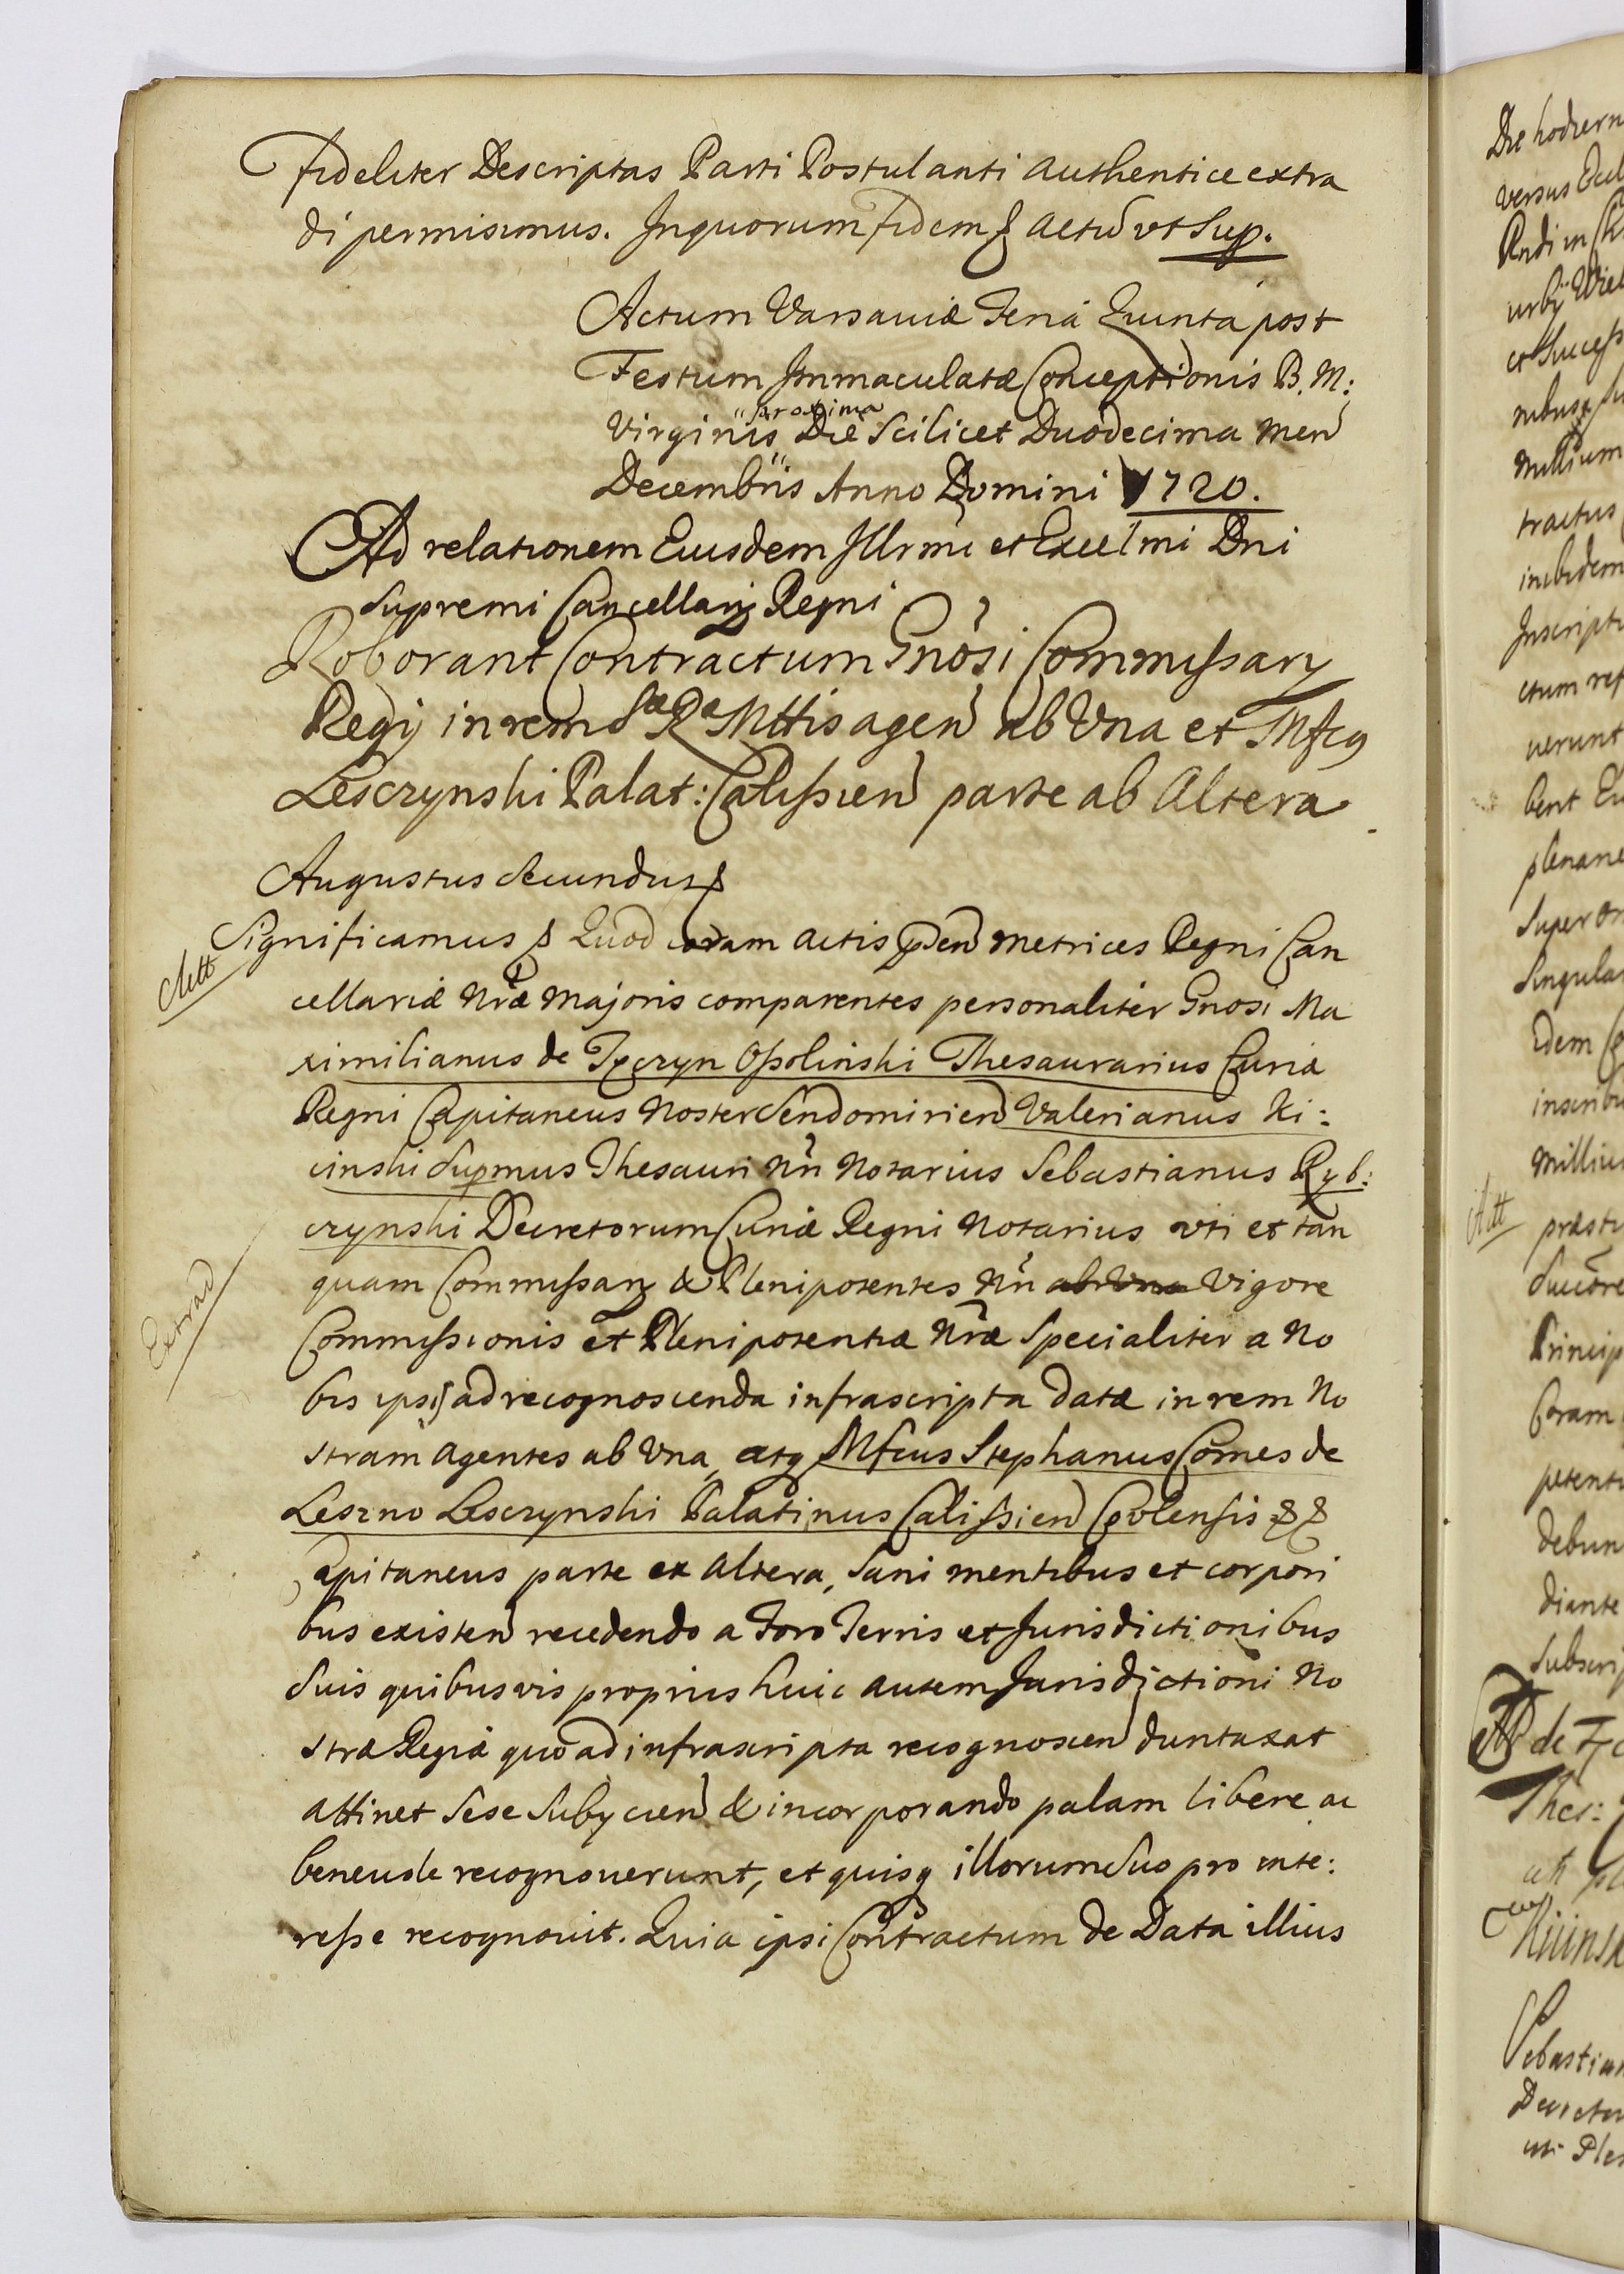 fideliter Descriptas Parti Postulanti authentice extra
di permisimus. In quorum fidem & actū ut Sup.
Actum Varsaviæ Feria Quinta post
Festum Immaculatæ Conceptionis B. M:
Virginis proxima Die Scilicet Duodecima Men
Decembris Anno Domini 1720.
Ad relationem Eiusdem Illrmi et Excellmi Dni
Supremi Cancellarij Regni
Roborant Contractum Gnosi Commissarij
Regij in rem Sæ Ræ Mttis agen ab Una et Mfcg
Lesczynski Palat: Calissien parte ab Altera
Augustus Secundus &
Significamus & Quod coram actis pden metrices Regni Can
Actt
cellariæ Nræ Majoris comparentes personaliter Gnosi Ma
ximilianus de Tęczyn Ossolinski Thesaurarius Curiæ
Regni Capitaneus Noster Sendomirien Valerianus Ki:
cinski Supmus Thesauri Nri Notarius Sebastianus Ryb:
czynski Decretorum Curiæ Regni Notarius uti et tan
quam Commissarij & Plenipotentes Nri ab Una Vigore
Extrad
Commissionis et Plenipotentiæ Nræ Specialiter a No
bis ipsis ad recognoscenda infrascripta datæ in rem No
stram agentes ab Una, atq Mfcus Stephanus Comes de
Leszno Lesczynski Palatinus Calissien Covlensis &&
Capitaneus parte ex Altera, Sani mentibus et corpori
bus existen recedendo a Foro Terris et Jurisdictionibus
Suis quibusvis proprius huic autem Jurisdictioni No
stræ Regiæ quo ad infrascripta recognoscen duntaxat
attinet Sese Subijcien & incorporando palam libere ac
benevole recognoverunt, et quisq illorum Suo pro inte:
resse recognovit. Quia ipsi Contractum de Data illius